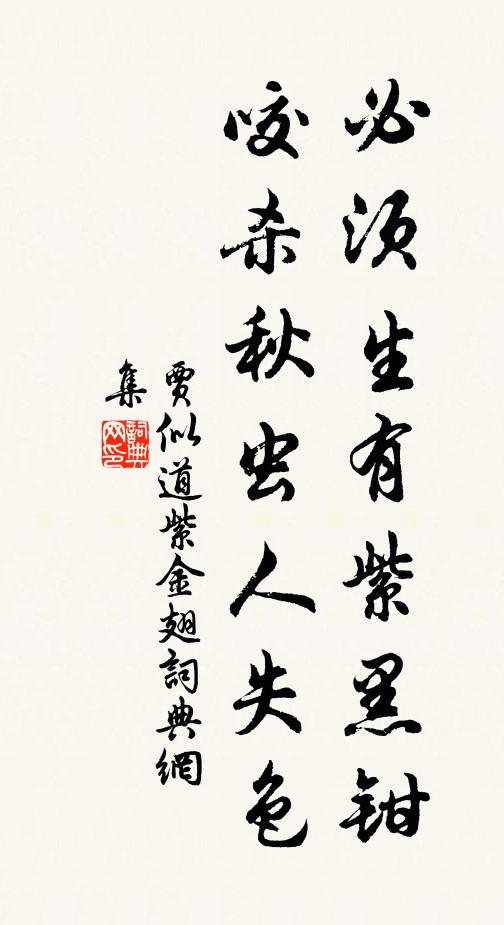 必须生有紫黑钳
咬杀秋虫人失色
賈似道紫金翅詞典網
集
詞典网印